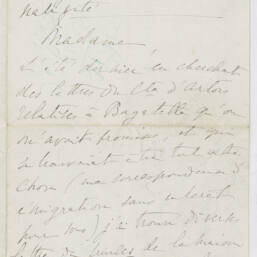 Madame
L'été dernier en cherchant
des lettres du Cte d'Artois
relatives à Bagatelle qu'on
m'avait promises, et qui
se trouvait être tout autre
chose (ma correspondance d'
émigration sans intérêt
pour vous) j'ai trouvé diverses
lettres de la maison